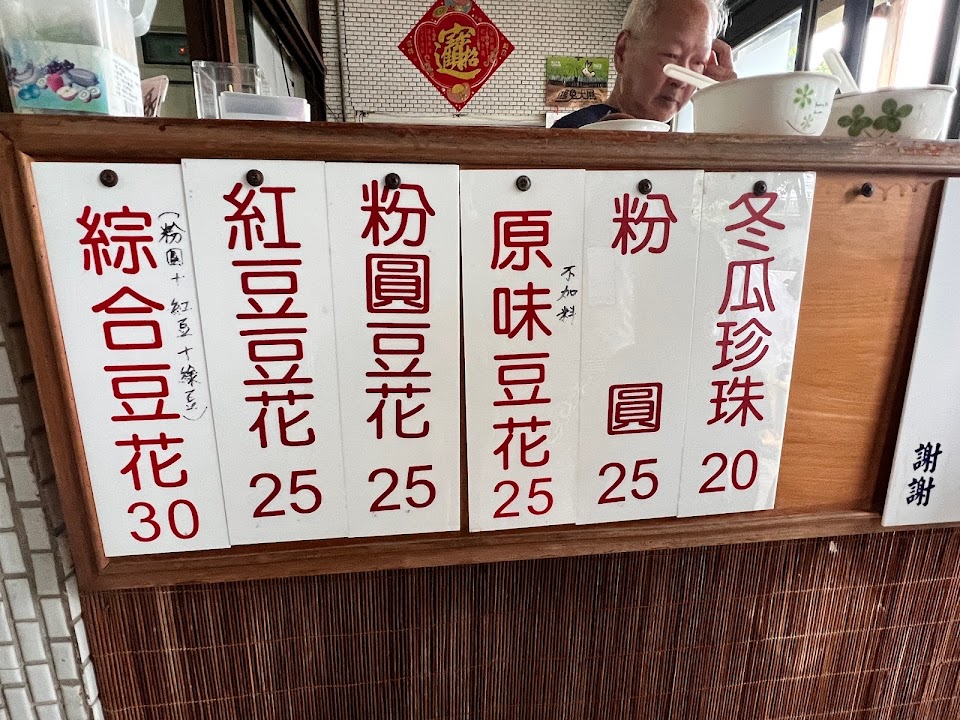 招財進寶
綜合豆花
30
(粉圓+紅豆+綠豆)
紅豆豆花
25
粉圓豆花
25
原味豆花
25
不加料
粉圓
25
冬瓜珍珠
20
謝謝